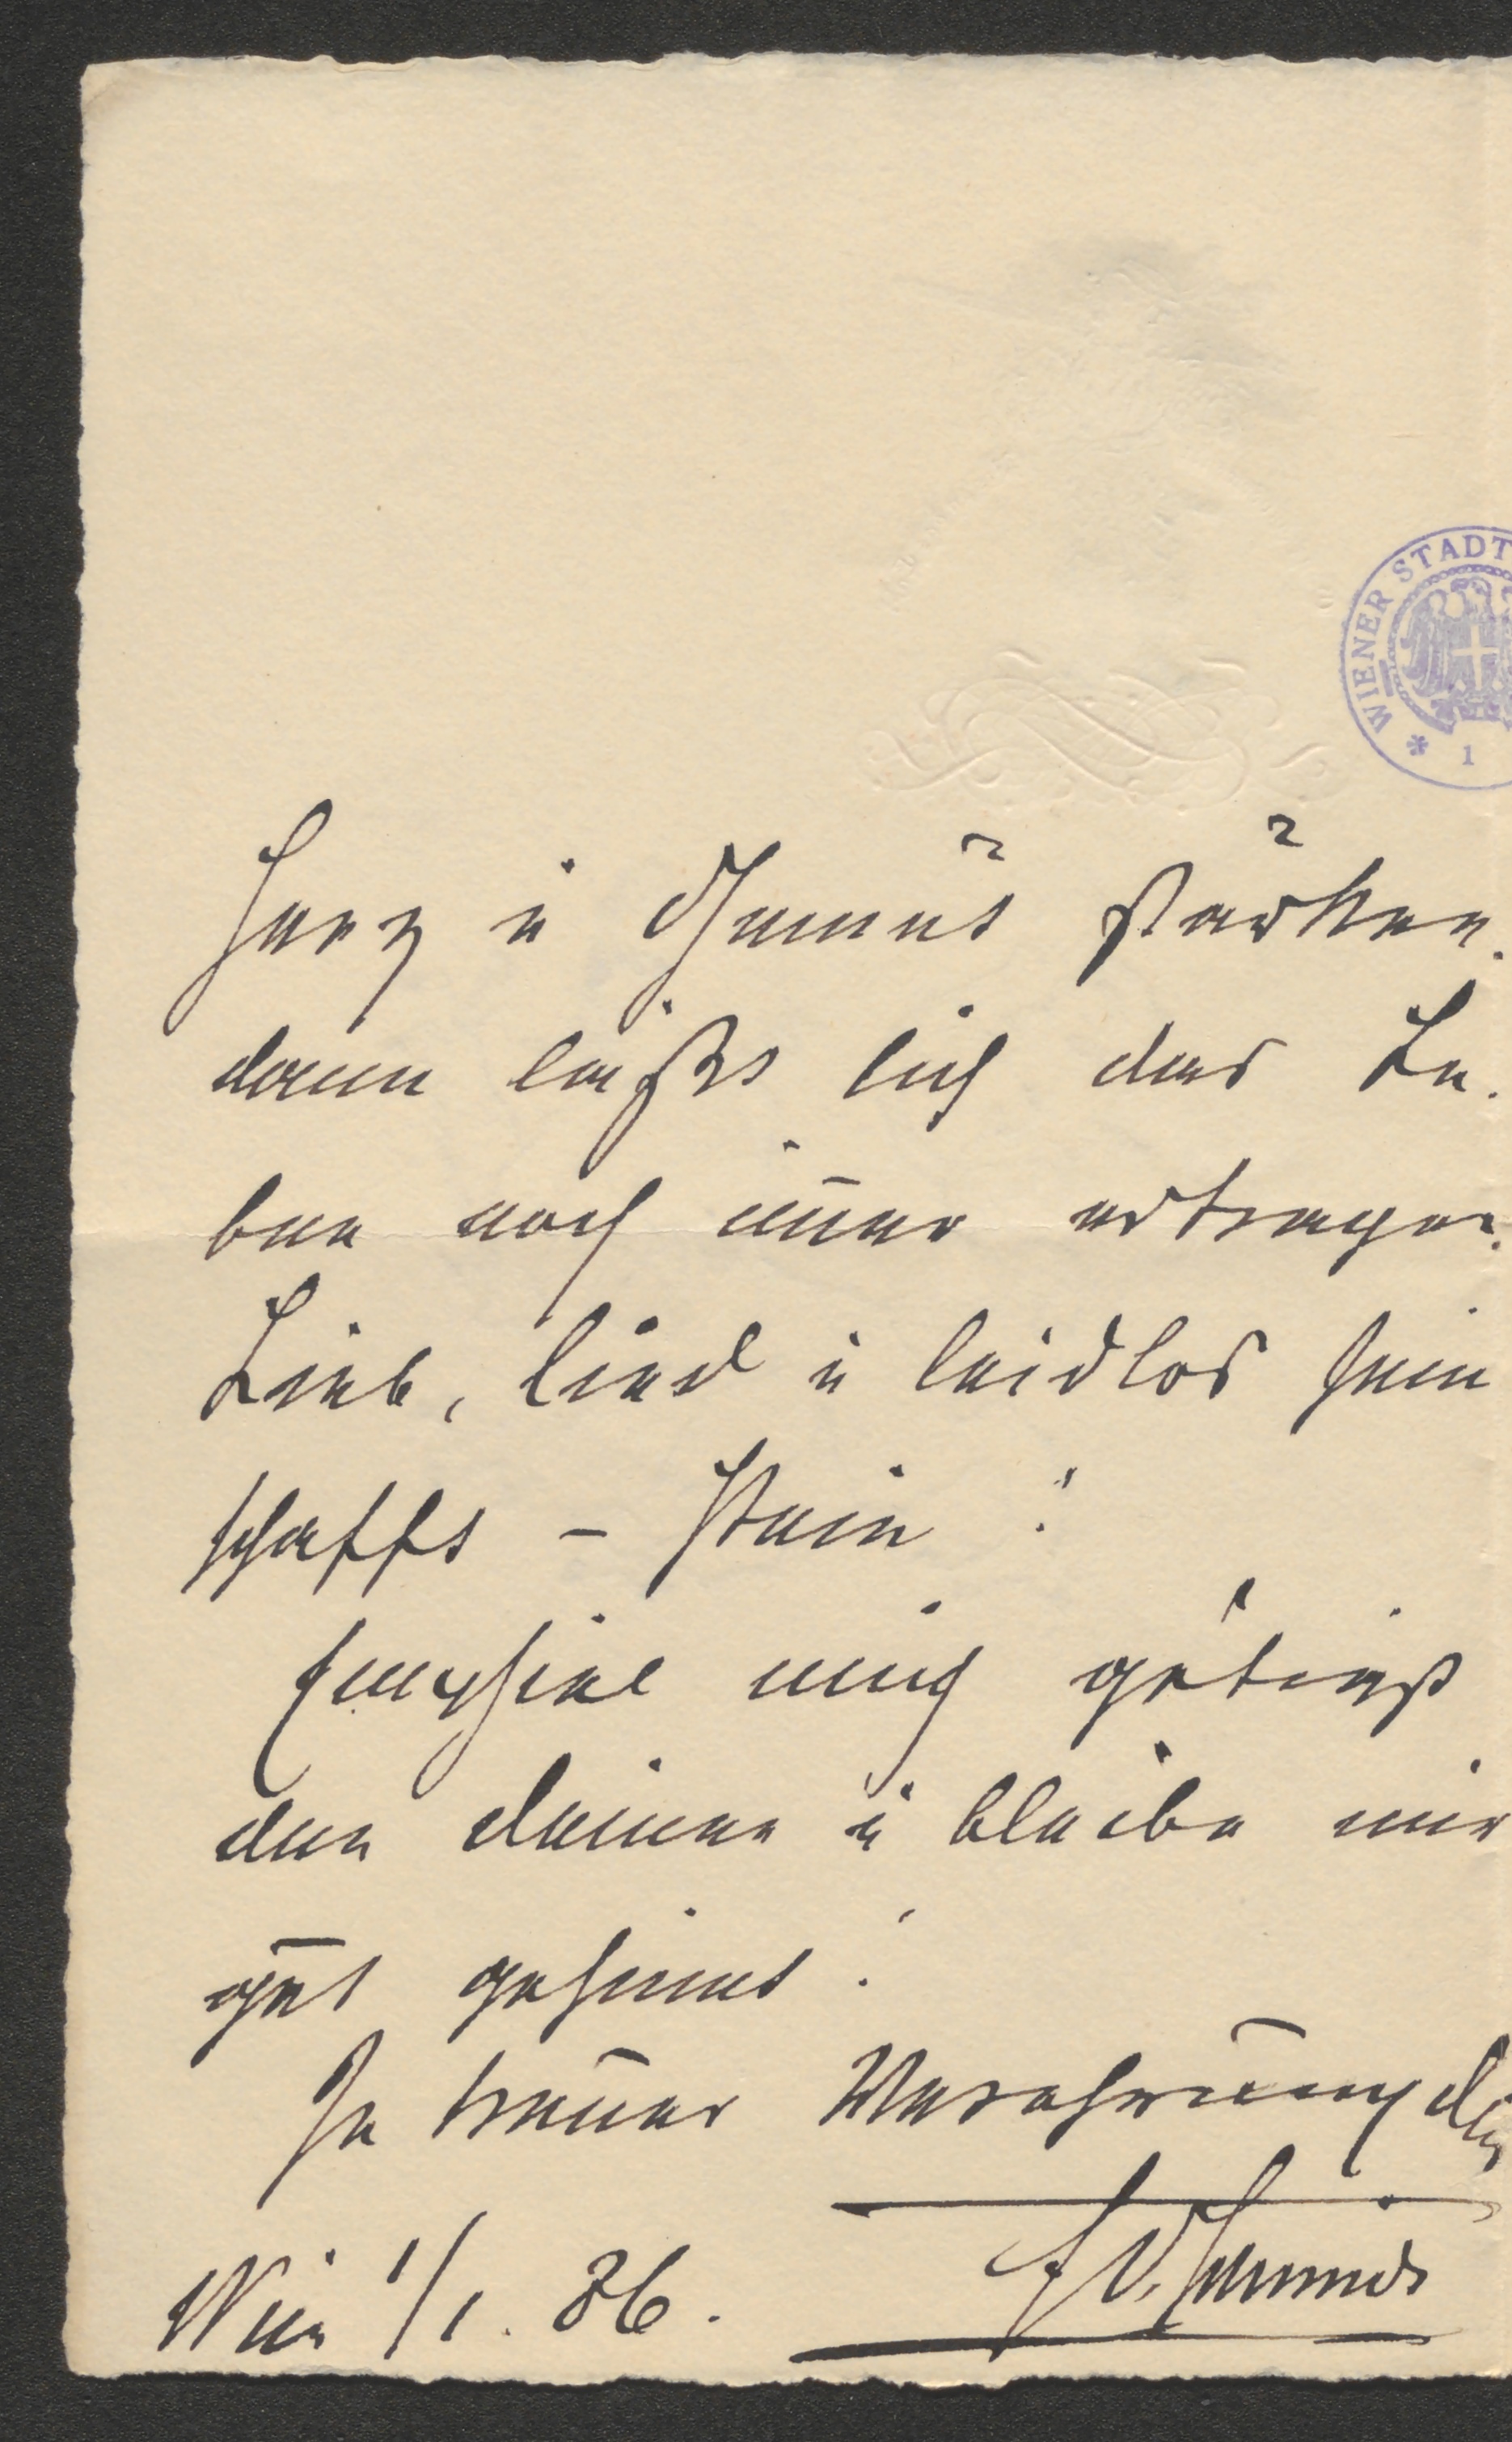 WIENER STADT
* 1
Herz u Gemüt stärken.
dann läßts sich das Le.
ben noch im̄er ertragen.
Lieb, lied u leidlos sein
schaffts – Stein!
Empfiel mich gütigst
den deinen u bleibe mir
gut gesinnt!
In treuer Verehrung dein
F v. Schmidt
Wien 1/1. 86.